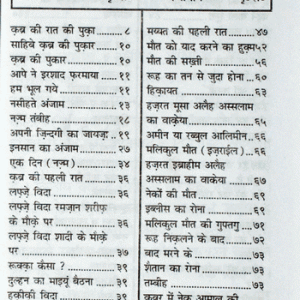 क़ब्र की रात की पुका......८
साहिबे क़ब्र की पुकार......१०
क़ब्र की पुकार......१०
आप ने इरशाद फ़रमाया......११
हम भूल गये......११
नसीहते अंजाम......१३
नज़्म तंबीह......१८
अपना ज़िन्दगी का जायज़ा......१९
इनसान का अंजाम......२७
एक दिन (नज़्म)......३४
क़ब्र की पहली रात......३६
लफ़्ज़े विदा......३६
लफ़्ज़े विदा रमज़ान शरीफ़
के मौक़े पर......३६
लफ़्ज़े विदा शादी के मौक़े
पर......३७
रूक्क़ा कैसा ?......३९
दुल्हन का माइयूँ बैठना......३९
हक़ीक़ी विदा
मय्यत की पहली रात......४७
मौत को याद करने का हुक्म५२
मौत की सख़्ती......५६
रूह का तन से जुदा होना......६०
हिकायत......६३
हज़रत मूसा अलैह अस्सलाम
का वाक़ेया......६५
अमीन या रब्बुल आलिमीन......६६
मलिकुल मौत (इज़राईल)......६६
हज़रत इब्राहीम अलैह
अस्सलाम का वाक़ेया......६७
नेकों की मौत......६८
इब्लीस का रोना......६९
मलिकुल मौत की गुफ्तगु......७१
रूह निकलने के बाद......७२
बाद मरने के......७३
शैतान का रोना......७३
तम्बीह......७३
क़ब्र में नेक आमाल की